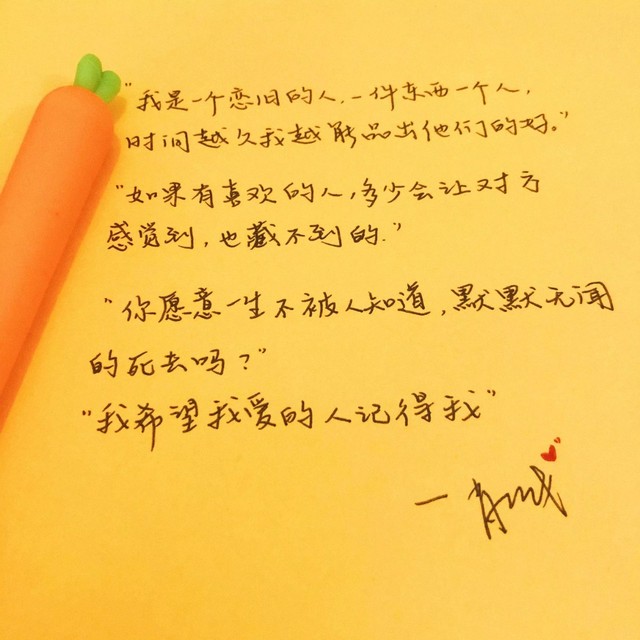 "我是一个恋旧的人，一件东西一个人，
时间越久我越能品出他们的好。"
"如果有喜欢的人，多少会让对方
感觉到，也藏不到的."
"你愿意一生不被人知道，默默无闻
的死去吗？"
"我希望我爱的人记得我"